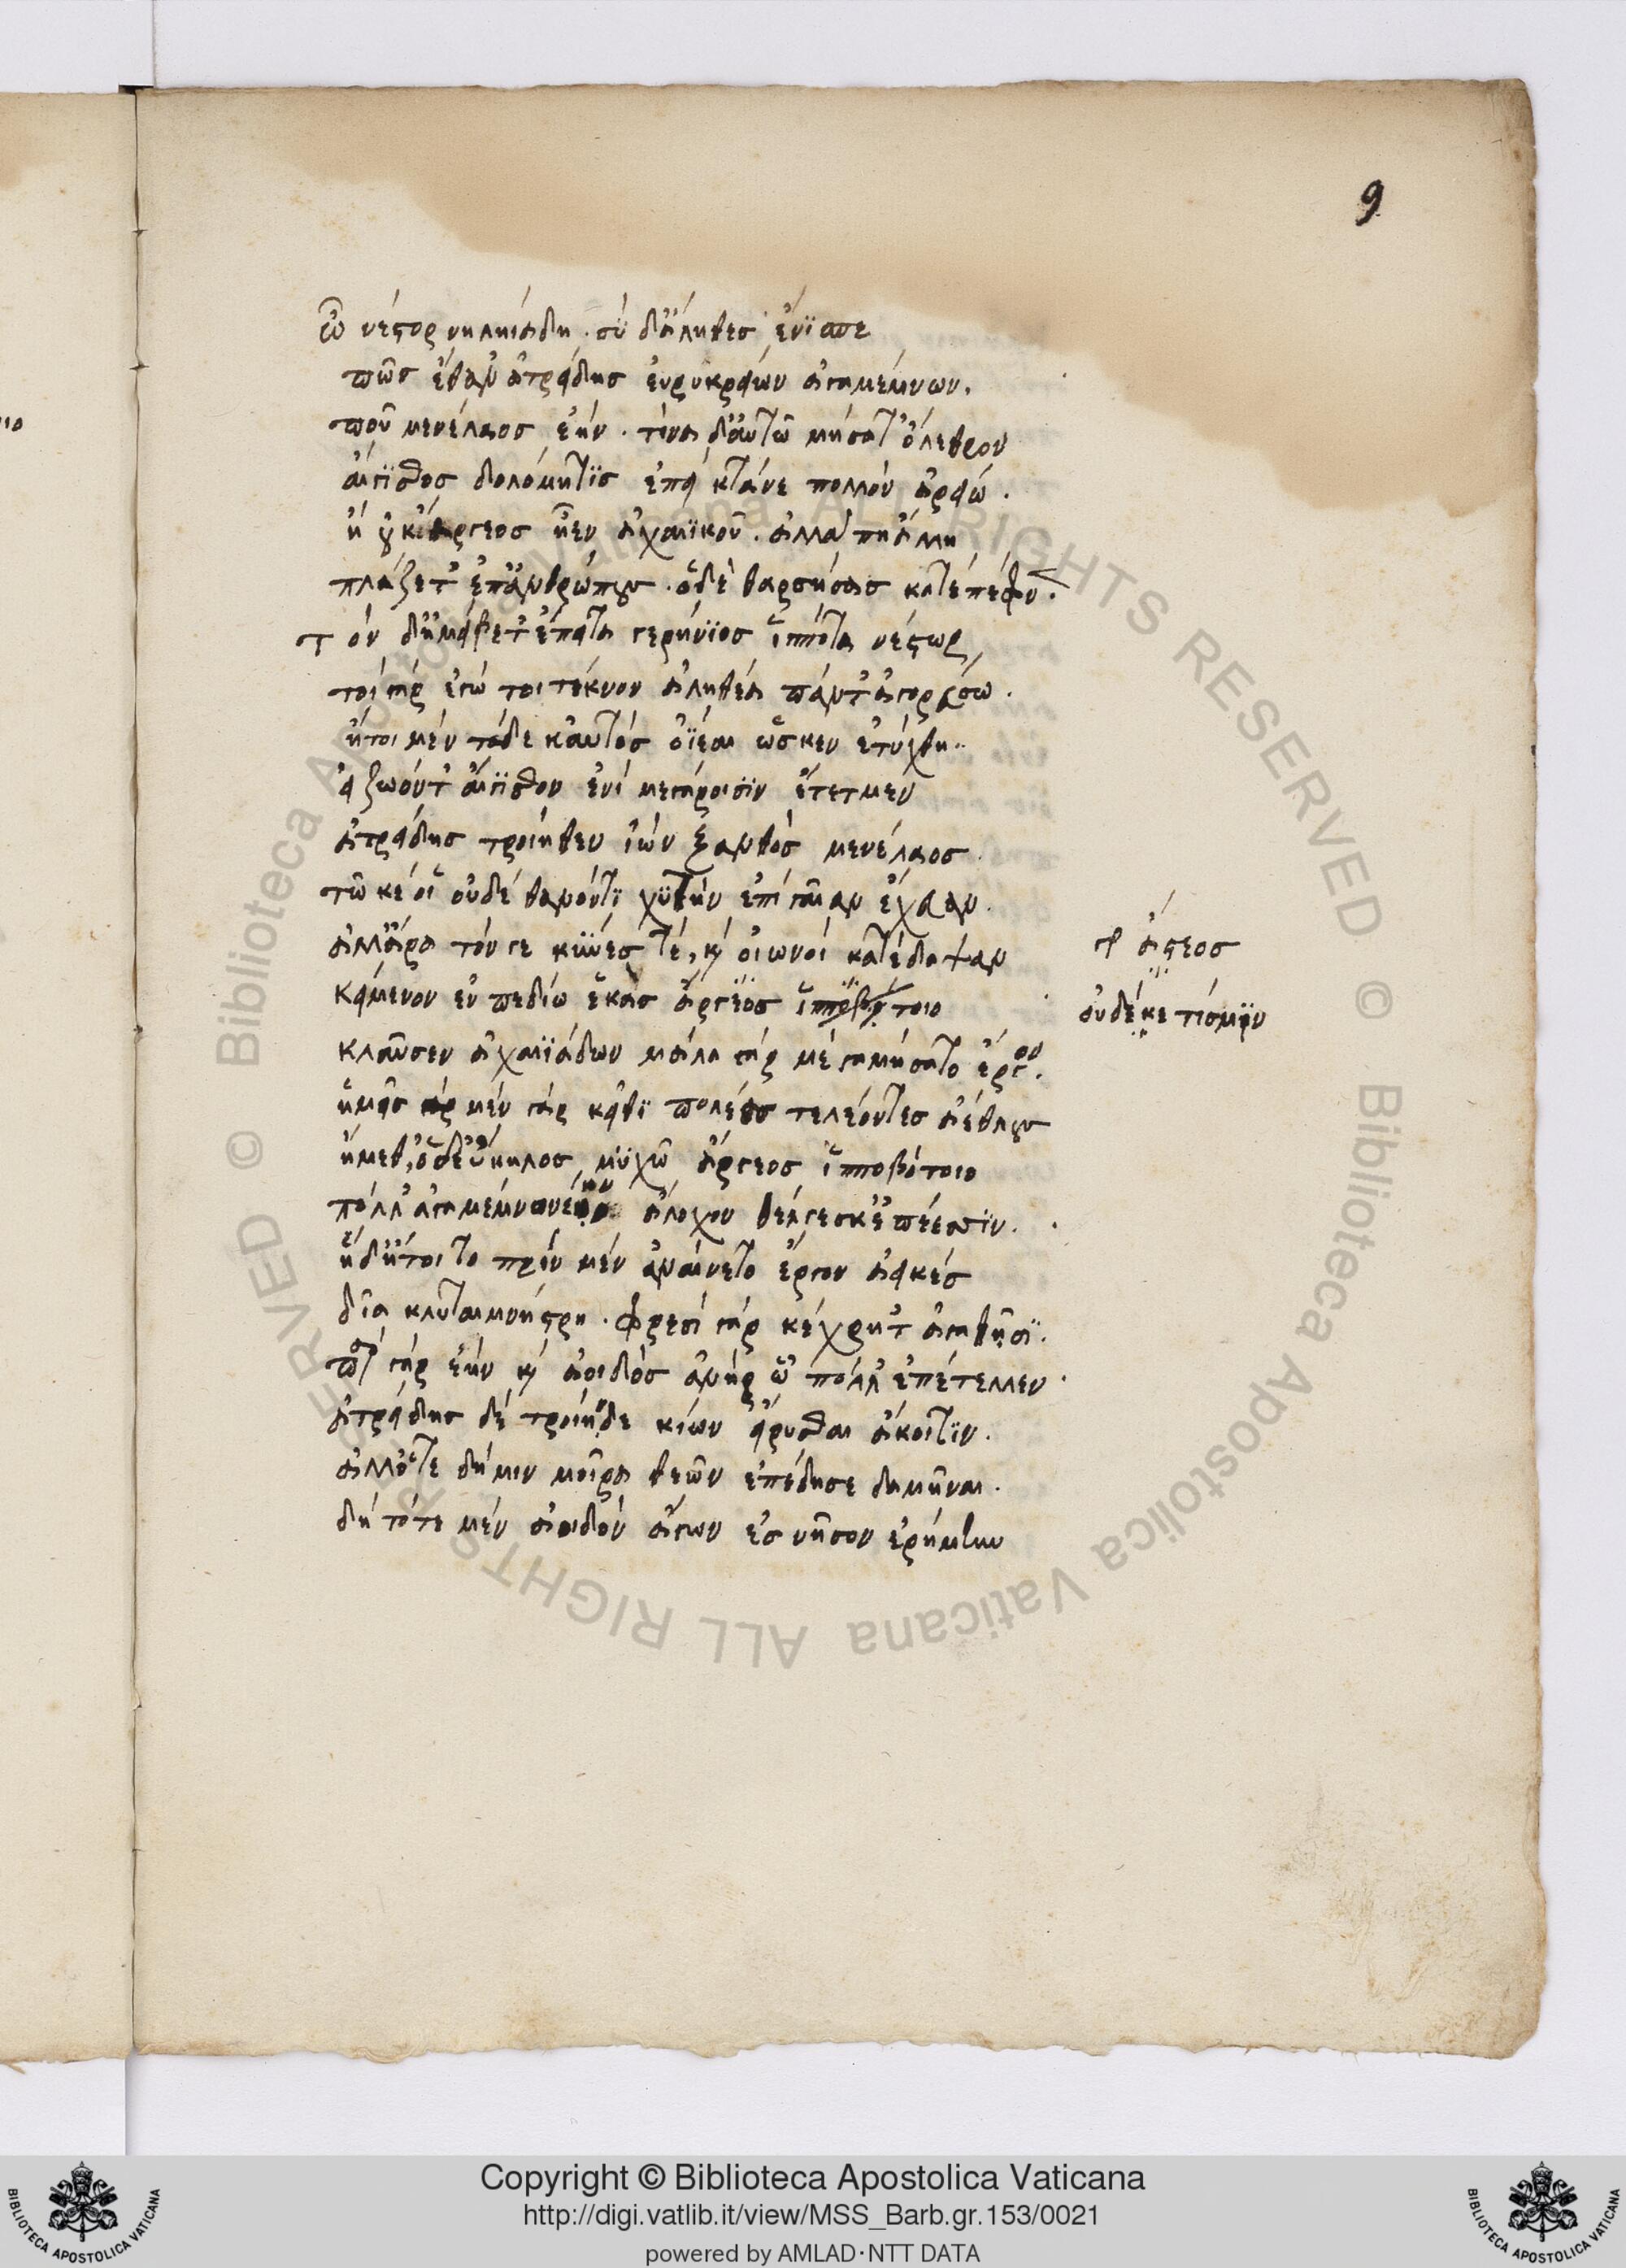 9
ὦ νέστορ νηληιάδη· σὺ δ' ἀληθὲς ἐνίσπε
πῶς ἔθαν' ἀτρείδης εὐρυκρείων ἀγαμέμνων.
ποῦ μενέλαος ἔην· τίνα δ' αὐτῶ μήσατ' ὄλεθρον
αἴγισθος δολόμητις ἐπεὶ κτάνε πολλὸν ἀρείω.
ἢ οὐκ ἄργεος ἦεν ἀχαιϊκοῦ. ἀλλά πη ἄλλη
πλάζετ' ἐπ' ἀνθρώπους· ὁ δὲ θαρσήσας κατέπεφνεν.
τὸν δ' ἠμείβετ' ἔπειτα γερήνιος ἱππότα νέστωρ,
τοὶ γὰρ ἐγώ τοι τέκνον ἀληθέα πάντ' ἀγορεύσω.
ἤτοι μὲν τόδε καὐτὸς ὀΐεαι ὥς κεν ἐτύχθη.
εἰ ζωόντ' αἴγισθον ἐνὶ μεγάροισιν ἔτετμεν
ἀτρείδης τροίηθεν ἰὼν ξανθὸς μενέλαος.
τῶ κέ οἱ οὐδὲ θανόντι χυτὴν ἐπὶ γαῖαν ἔχευαν.
ἀλλ' ἄρα τόν γε κύνες τὲ, καὶ οἰωνοὶ κατέδαψαν
κείμενον ἐν πεδίω ἑκὰς ἄργεος ἱπποβότοιο
γρ ἄστεος
οὐδέ κε τίσμιν
κλαῦσεν ἀχαιϊάδων μάλα γὰρ μέγα μήσατο ἔργον.
ἡμεῖς μὲν γὰρ κεῖθι πολέας τελέοντες ἀέθλους
ἥμεθ', ὁ δ' εὔκηλος μυχῶ ἄργεος ἱπποβότοιο
πόλλ' ἀγαμεμνονέην ἄλοχον θέλγεσκ' ἐπέεσσιν.
ἡ δ' ἤτοι το πρὶν μὲν ἀναίνετο ἔργον ἀεικές
δῖα κλυταιμνήστρη· φρεσὶ γὰρ κέχρητ' ἀγαθῆσι.
πὰρ γὰρ ἔην καὶ ἀοιδὸς ἀνὴρ ᾧ πόλλ' ἐπέτελλεν
ἀτρείδης δὲ τροίηνδε κίων εἴρυσθαι ἄκοιτιν.
ἀλλ' ὅτε δή μιν μοῖρα θεῶν ἐπέδησε δαμῆναι.
δὴ τότε μὲν ἀοιδὸν ἄγων ἐς νῆσον ἐρήμην
Copyright © Biblioteca Apostolica Vaticana
http://digi.vatlib.it/view/MSS_Barb.gr.153/0021
powered by AMLAD·NTT DATA
BIBLIOTECA APOSTOLICA VATICANA
BIBLIOTECA APOSTOLICA VATICANA
© Biblioteca Apostolica Vaticana ALL RIGHTS RESERVED © Biblioteca Apostolica Vaticana ALL RIGHTS RESERVED